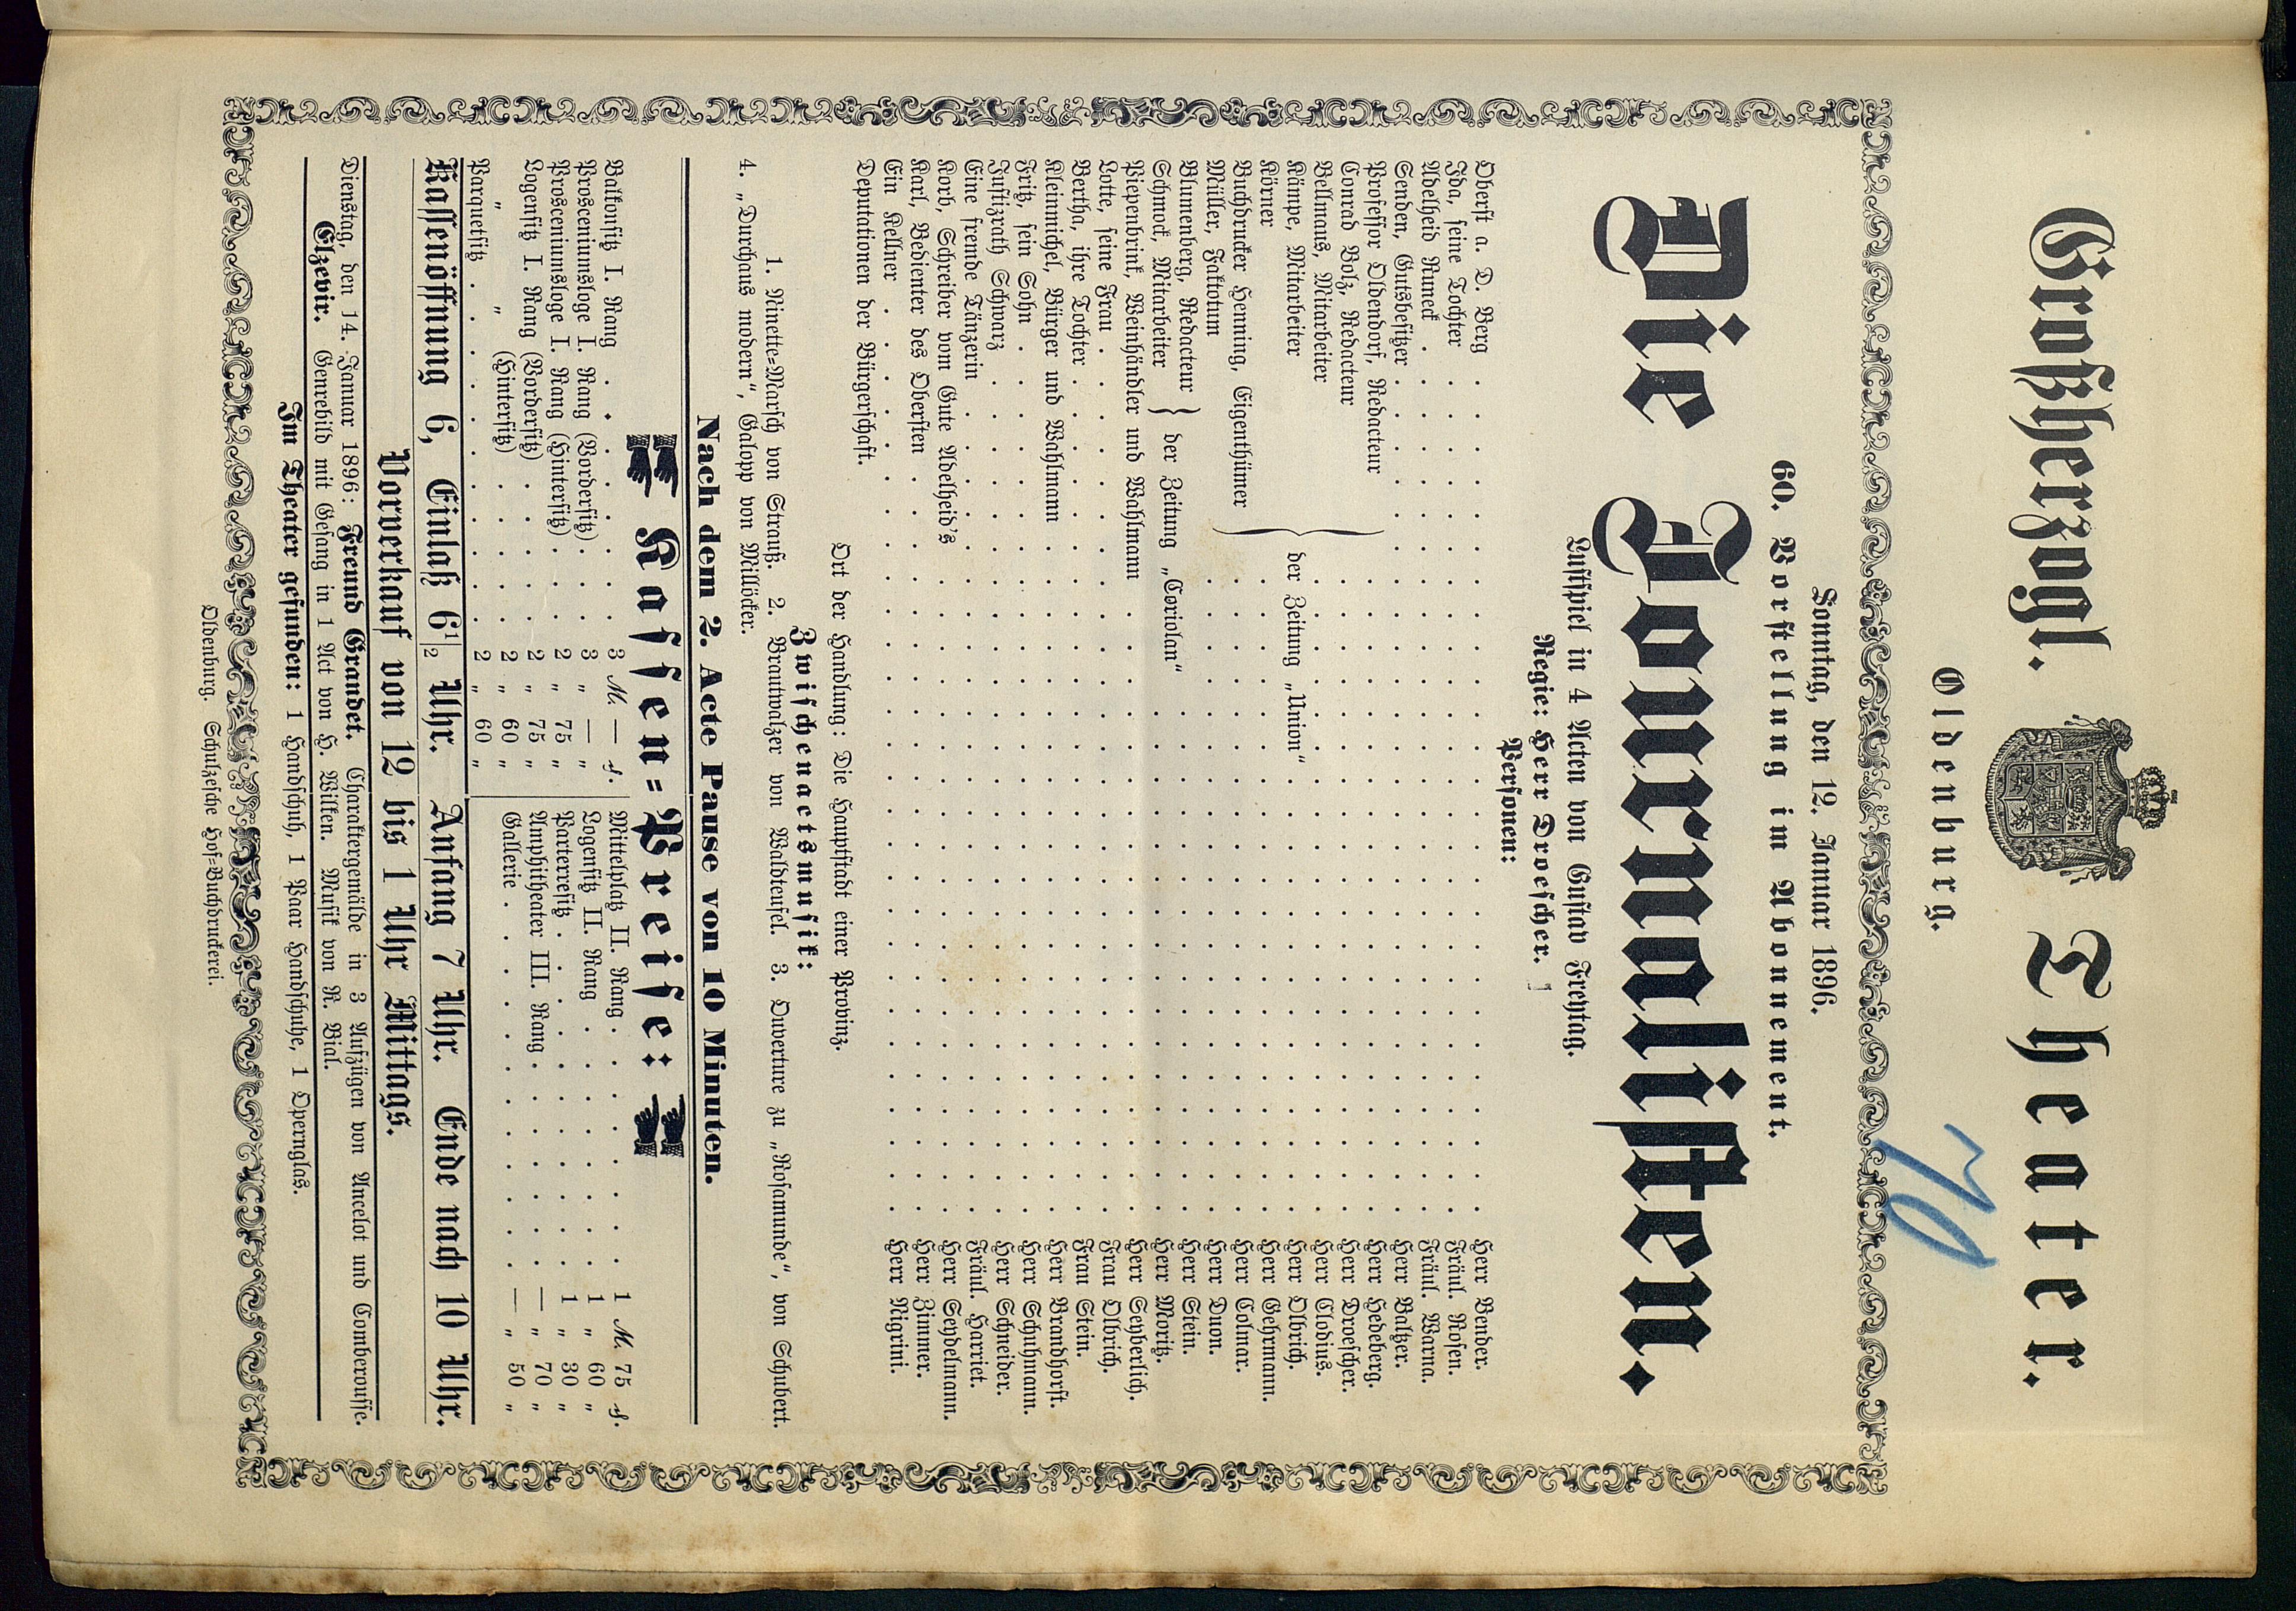 Großherzogl. Theater.
Oldenburg.
70
Sonntag, den 12. Januar 1896.
60. Vorstellung im Abonnement.
Die Journalisten.
Lustspiel in 4 Acten von Gustav Freytag.
Regie: Herr Droescher.
Personen:
Oberst a. D. Berg . . . Herr Bender.
Ida, seine Tochter . . . Fräul. Rosen.
Adelheid Runeck . . . Fräul. Warna.
Senden, Gutsbesitzer . . . Herr Baltzer.
Professor Oldendorf, Redacteur . . . Herr Hedeberg.
Conrad Bolz, Redacteur . . . Herr Droescher.
Bellmaus, Mitarbeiter . . . Herr Clodius.
Kämpe, Mitarbeiter } der Zeitung „Union“ . . . Herr Olbrich.
Körner . . . Herr Gehrmann.
Buchdrucker Henning, Eigenthümer . . . Herr Colmar.
Müller, Faktotum . . . Herr Duon.
Blumenberg, Redacteur . . . Herr Stein.
Schmock, Mitarbeiter } der Zeitung „Coriolan“ . . . Herr Moritz.
Piepenbrink, Weinhändler und Wahlmann . . . Herr Seyberlich.
Lotte, seine Frau . . . Frau Olbrich.
Bertha, ihre Tochter . . . Frau Stein.
Kleinmichel, Bürger und Wahlmann . . . Herr Brandhorst.
Fritz, sein Sohn . . . Herr Schuhmann.
Justizrath Schwarz . . . Herr Schneider.
Eine fremde Tänzerin . . . Fräul. Harriet.
Korb, Schreiber vom Gute Adelheid's . . . Herr Seydelmann.
Karl, Bedienter des Obersten . . . Herr Zimmer.
Ein Kellner . . . Herr Nigrini.
Deputationen der Bürgerschaft.
Ort der Handlung: Die Hauptstadt einer Provinz.
Zwischenactsmusik:
1. Ninette-Marsch von Strauß. 2. Brautwalzer von Waldteufel. 3. Ouverture zu „Rosamunde“, von Schubert.
4. „Durchaus modern“, Galopp von Millöcker.
Nach dem 2. Acte Pause von 10 Minuten.
Kassen-Preise:
Balkonsitz I. Rang . . . 3 M. — ₰.
Prosceniumsloge I. Rang (Vordersitz) . . . 3 „ — „
Prosceniumsloge I. Rang (Hintersitz) . . . 2 „ 75 „
Logensitz I. Rang (Vordersitz) . . . 2 „ 75 „
„ „ (Hintersitz) . . . 2 „ 60 „
Parquetsitz . . . 2 „ 60 „
Mittelplatz II. Rang . . . 1 M. 75 ₰.
Logensitz II. Rang . . . 1 „ 60 „
Parterresitz . . . 1 „ 30 „
Amphitheater III. Rang . . . — „ 70 „
Gallerie . . . — „ 50 „
Kassenöffnung 6, Einlaß 6½ Uhr. Anfang 7 Uhr. Ende nach 10 Uhr.
Vorverkauf von 12 bis 1 Uhr Mittags.
Dienstag, den 14. Januar 1896: Freund Grandet. Charaktergemälde in 3 Aufzügen von Ancelot und Comberousse.
Elzevir. Genrebild mit Gesang in 1 Act von H. Wilken. Musik von R. Bial.
Im Theater gefunden: 1 Handschuh, 1 Paar Handschuhe, 1 Opernglas.
Oldenburg. Schulzesche Hof-Buchdruckerei.